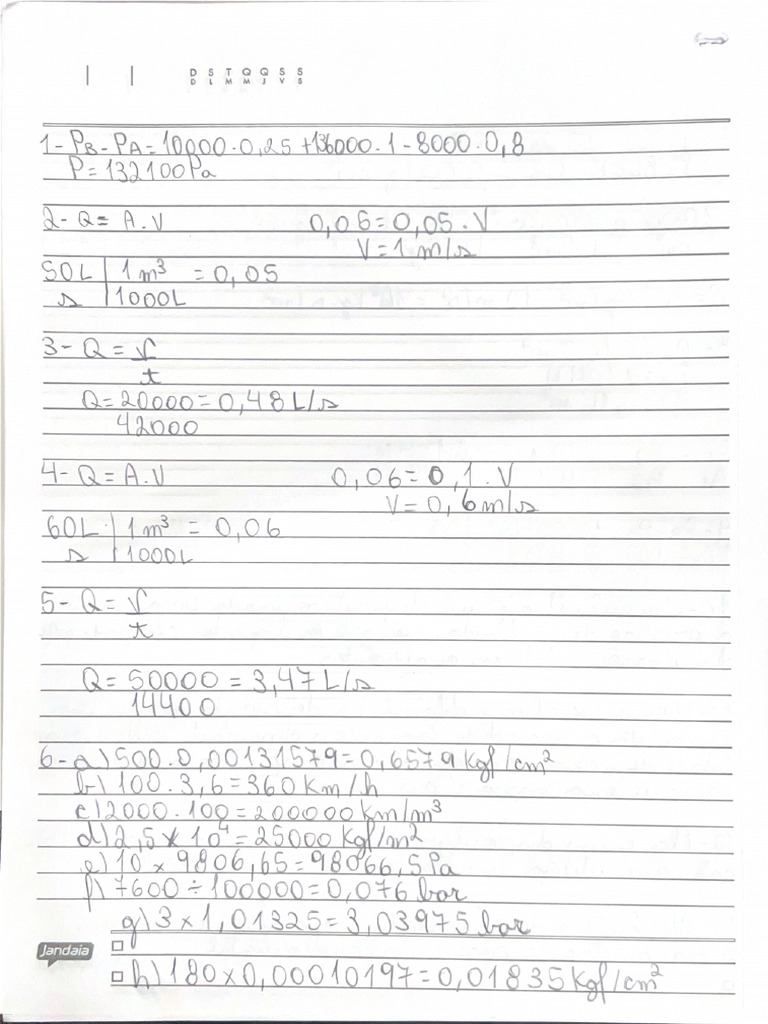 D S T Q Q S S
D L M M J V S
1- PB - PA = 10000 . 0,25 + 136000 . 1 - 8000 . 0,8
P = 132100 Pa
2- Q = A . V 0,06 = 0,05 . V
V = 1 m/s
50L | 1 m³ = 0,05
s | 1000L
3- Q = V
t
Q = 20000 = 0,48 L/s
42000
4- Q = A . V 0,06 = 0,1 . V
V = 0,6 m/s
60L | 1 m³ = 0,06
s | 1000L
5- Q = V
t
Q = 50000 = 3,47 L/s
14400
6- a) 500 . 0,00131579 = 0,6579 kgf/cm²
b) 100 . 3,6 = 360 km/h
c) 2000 . 100 = 200000 km/m³
d) 2,5 x 10⁴ = 25000 kgf/m²
e) 10 x 9806,65 = 98066,5 Pa
f) 7600 ÷ 100000 = 0,076 bar
g) 3 x 1,01325 = 3,03975 bar
Jandaia
h) 180 x 0,00010197 = 0,01835 kgf/cm²